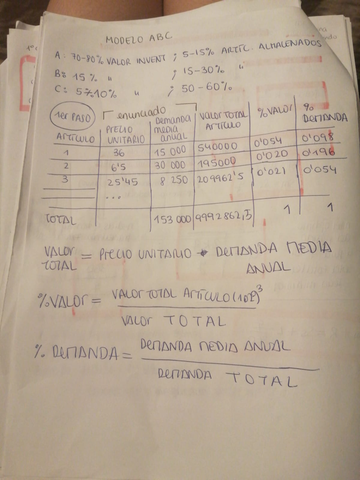 MODELO ABC
A: 70-80% VALOR INVENT ; 5-15% ARTÍC. ALMACENADOS
B: 15% " ; 15-30% "
C: 5-10% " ; 50-60% "
1er PASO enunciado
ARTÍCULO PRECIO UNITARIO Demanda media anual VALOR TOTAL ARTÍCULO % VALOR % DEMANDA
1 36 15 000 540000 0'054 0'098
2 6'5 30 000 195000 0'020 0'196
3 25'45 8 250 209962'5 0'021 0'054
...
TOTAL 153 000 9992862,5 1 1
VALOR TOTAL = PRECIO UNITARIO * DEMANDA MEDIA ANUAL
% VALOR = VALOR TOTAL ARTÍCULO
VALOR TOTAL
% DEMANDA = DEMANDA MEDIA ANUAL
DEMANDA TOTAL